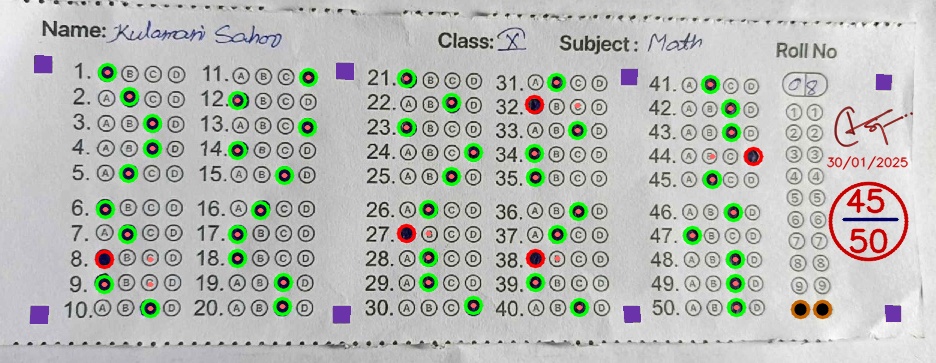 Name: Kulamani Sahoo
Class: X
Subject: Math
Roll No
08
1. B C D
2. A C D
3. A B D
4. A B D
5. A C D
6. B C D
7. A C D
8. B C D
9. B C D
10. A B D
11. A B C
12. B C D
13. A B C
14. B C D
15. A B D
16. A C D
17. B C D
18. B C D
19. A B D
20. A B D
21. B C D
22. A B D
23. B C D
24. A B C
25. A B D
26. A C D
27. B C D
28. A C D
29. A C D
30. A B C
31. A C D
32. B C D
33. A B D
34. B C D
35. B C D
36. A B D
37. A C D
38. B C D
39. B C D
40. A B D
41. A C D
42. A B D
43. A B D
44. A B C
45. A C D
46. A B D
47. B C D
48. A B D
49. A B D
50. A B D
1 1
2 2
3 3
4 4
5 5
6 6
7 7
8 8
9 9
30/01/2025
45
50